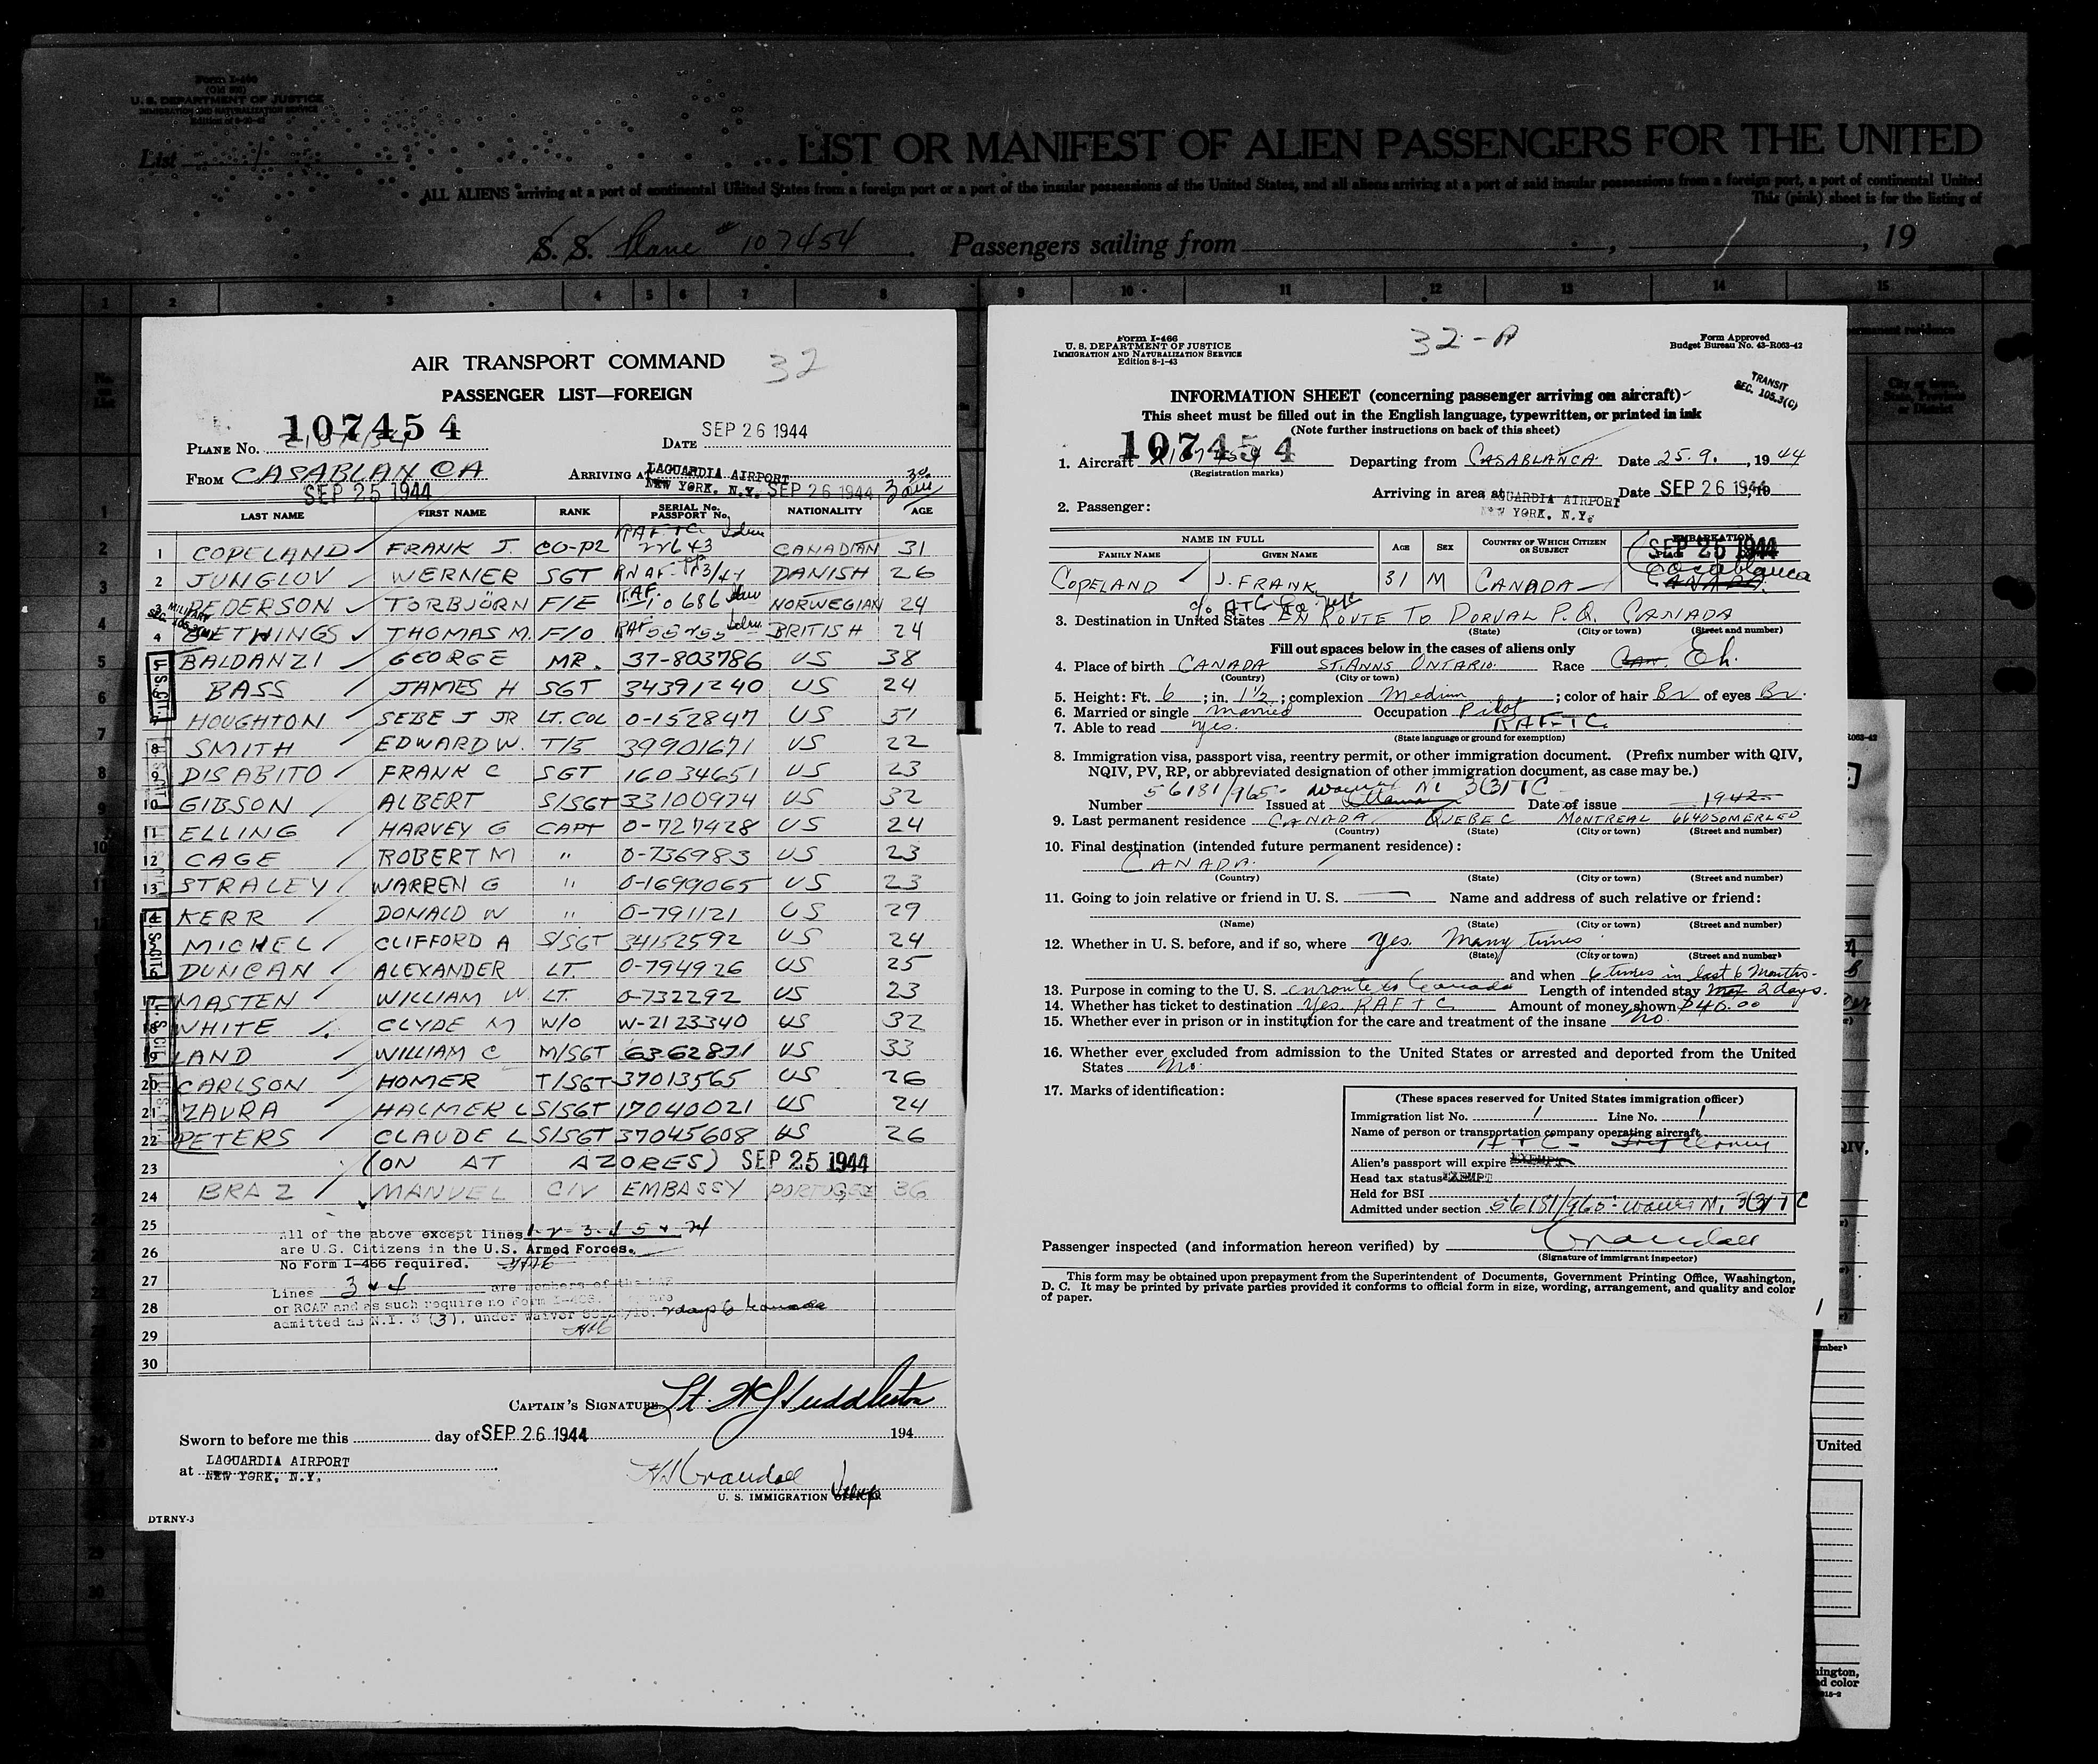 Form I-466
(Old 500)
U. S. DEPARTMENT OF JUSTICE
IMMIGRATION AND NATURALIZATION SERVICE
List 1
LIST OR MANIFEST OF ALIEN PASSENGERS FOR THE UNITED
ALL ALIENS arriving at a port of continental United States from a foreign port or a port of the insular possessions of the United States, and all aliens arriving at a port of said insular possessions from a foreign port, a port of continental United
This (pink) sheet is for the listing of
S. S. Plane # 107454 Passengers sailing from , , 19
1 2 3 4 5 6 7 8 9 10 11 12 13 14 15
AIR TRANSPORT COMMAND 32
PASSENGER LIST—FOREIGN
PLANE NO. 107454 DATE SEP 26 1944
FROM CASABLANCA SEP 25 1944 ARRIVING AT LAGUARDIA AIRPORT NEW YORK, N.Y. SEP 26 1944
LAST NAME FIRST NAME RANK SERIAL No. PASSPORT No. NATIONALITY AGE
1 COPELAND FRANK J. CO-P2 RAFTC 22643 CANADIAN 31
2 JUNGLOV WERNER SGT DANISH 26
3 PEDERSON TORBJÖRN F/E RAF 10686 NORWEGIAN 24
4 GETHINGS THOMAS M. F/O RAF BRITISH 24
5 BALDANZI GEORGE MR. 37-803786 US 38
BASS JAMES H SGT 34391240 US 24
7 HOUGHTON SEBE J JR LT. COL 0-152847 US 51
8 SMITH EDWARD W. T/5 39901671 US 22
9 DISABITO FRANK C SGT 16034651 US 23
10 GIBSON ALBERT S/SGT 33100974 US 32
11 ELLING HARVEY G CAPT 0-727428 US 24
12 CAGE ROBERT M " 0-736983 US 23
13 STRALEY WARREN G " 0-1699065 US 23
14 KERR DONALD W " 0-791121 US 29
MICHEL CLIFFORD A S/SGT 34152592 US 24
DUNCAN ALEXANDER LT. 0-794926 US 25
17 MASTEN WILLIAM W LT. 0-732292 US 23
18 WHITE CLYDE M W/O W-2123340 US 32
19 LAND WILLIAM C M/SGT 6362871 US 33
20 CARLSON HOMER T/SGT 37013565 US 26
21 ZAURA HALMER L S/SGT 17040021 US 24
22 PETERS CLAUDE L S/SGT 37045608 US 26
23 (ON AT AZORES) SEP 25 1944
24 BRAZ MANUEL CIV EMBASSY PORTUGESE 36
25 All of the above except lines 1-2-3-4 5 & 24
26 are U.S. Citizens in the U.S. Armed Forces.
No Form I-466 required.
27 Lines 3 & 4 are members of the RAF
28 or RCAF and as such require no Form I-466.
admitted as N.I. 3 (3), under waiver 2 days to Canada
29
30
CAPTAIN'S SIGNATURE Lt. Huddleston
Sworn to before me this day of SEP 26 1944 194
at LAGUARDIA AIRPORT
NEW YORK, N.Y.
H Crandall
U. S. IMMIGRATION OFFICER
DTRNY-3
Form I-466
U. S. DEPARTMENT OF JUSTICE
IMMIGRATION AND NATURALIZATION SERVICE
Edition 8-1-43
32-A
Form Approved
Budget Bureau No. 43-R063-42
TRANSIT
SEC. 105.3(C)
INFORMATION SHEET (concerning passenger arriving on aircraft)
This sheet must be filled out in the English language, typewritten, or printed in ink
(Note further instructions on back of this sheet)
1. Aircraft 107454 Departing from CASABLANCA Date 25.9., 1944
(Registration marks)
Arriving in area at LAGUARDIA AIRPORT NEW YORK, N.Y. Date SEP 26 1944
2. Passenger:
NAME IN FULL AGE SEX COUNTRY OF WHICH CITIZEN OR SUBJECT EMBARKATION
FAMILY NAME GIVEN NAME PLACE SEP 25 1944
COPELAND J. FRANK 31 M CANADA Casablanca
3. Destination in United States EN ROUTE TO DORVAL P.Q. CANADA
(State) (City or town) (Street and number)
Fill out spaces below in the cases of aliens only
4. Place of birth CANADA ST. ANNS ONTARIO. Race Eh.
(Country) (City or town)
5. Height: Ft. 6; in. 1½; complexion Medium; color of hair Br of eyes Br.
6. Married or single Married Occupation Pilot
7. Able to read yes. RAFTC.
(State language or ground for exemption)
8. Immigration visa, passport visa, reentry permit, or other immigration document. (Prefix number with QIV,
NQIV, PV, RP, or abbreviated designation of other immigration document, as case may be.)
56181/965 waiver NI 3(3) TC
Number Issued at Ottawa Date of issue 1942
9. Last permanent residence CANADA QUEBEC MONTREAL 6640 SOMERLED
(Country) (State) (City or town) (Street and number)
10. Final destination (intended future permanent residence):
CANADA.
(Country) (State) (City or town) (Street and number)
11. Going to join relative or friend in U. S. — Name and address of such relative or friend:
(Name) (State) (City or town) (Street and number)
12. Whether in U. S. before, and if so, where yes. Many times
(State) (City or town) (Street and number)
and when 6 times in last 6 Months-
13. Purpose in coming to the U. S. enroute to Canada Length of intended stay 2 days.
14. Whether has ticket to destination yes. RAFTC Amount of money shown $40.00
15. Whether ever in prison or in institution for the care and treatment of the insane No.
16. Whether ever excluded from admission to the United States or arrested and deported from the United
States No.
17. Marks of identification:
(These spaces reserved for United States immigration officer)
Immigration list No. 1 Line No. 1
Name of person or transportation company operating aircraft
ATC -
Alien's passport will expire EXEMPT
Head tax status EXEMPT
Held for BSI
Admitted under section 56181/965 waiver NI 3(3) TC
Passenger inspected (and information hereon verified) by Crandall
(Signature of immigrant inspector)
This form may be obtained upon prepayment from the Superintendent of Documents, Government Printing Office, Washington,
D. C. It may be printed by private parties provided it conforms to official form in size, wording, arrangement, and quality and color
of paper.
United